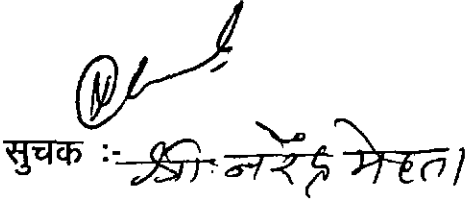 सुचक :- श्री. नरेंद्र मेहता